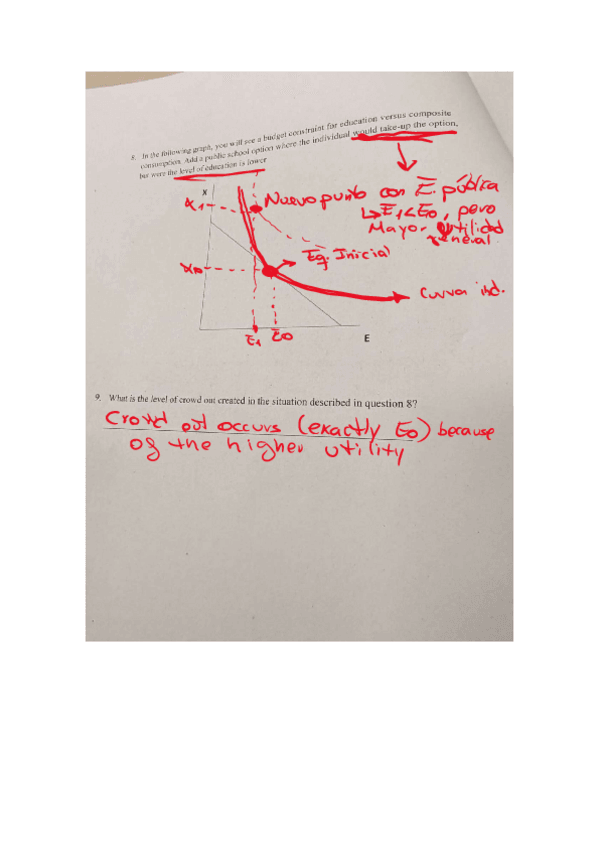 8. In the following graph, you will see a budget constraint for education versus composite
consumption. Add a public school option where the individual would take-up the option,
but were the level of education is lower
X
X1
Nuevo punto con E. pública
↳ E1<E0, pero
Mayor utilidad
general
Eq. Inicial
X0
Curva ind.
E1 E0
E
9. What is the level of crowd out created in the situation described in question 8?
Crowd out occurs (exactly E0) because
of the higher utility